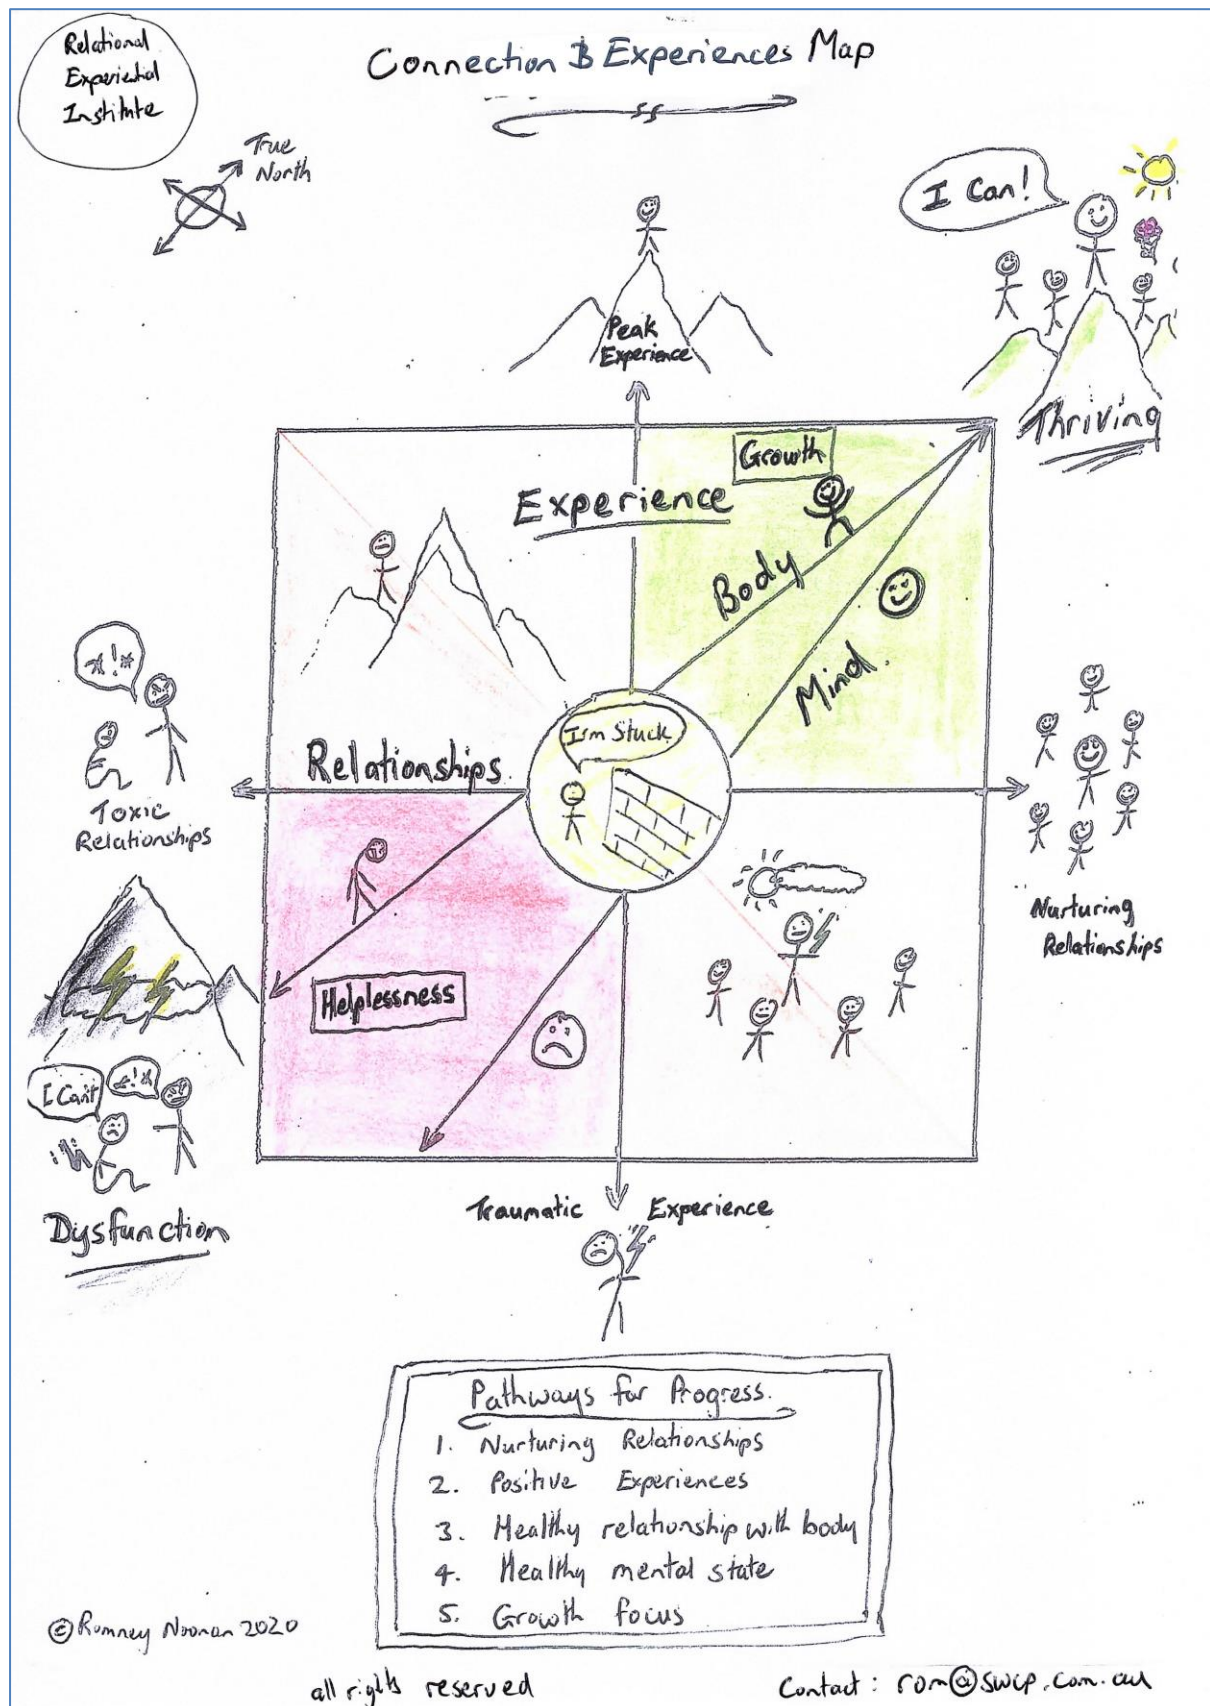 Relational
Experiential
Institute
Connection & Experiences Map
True
North
I Can!
Peak
Experience
Thriving
Growth
Experience
Body
Mind
*!*
I'm Stuck
Relationships
Toxic
Relationships
Nurturing
Relationships
Helplessness
I Can't
*!*
Dysfunction
Traumatic Experience
Pathways for Progress.
1. Nurturing Relationships
2. Positive Experiences
3. Healthy relationship with body
4. Healthy mental state
5. Growth focus
© Romney Noonan 2020
all rights reserved
Contact: rom@swcp.com.au